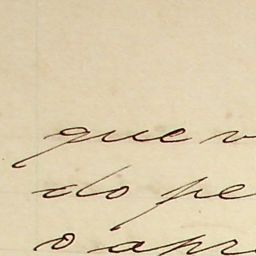 que v
do pe
o apr